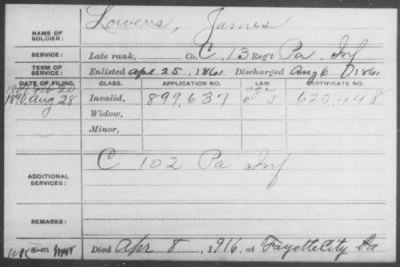 NAME OF SOLDIER: Lowers, James
SERVICE: Late rank, Co. C, 13 Reg't Pa. Inf
TERM OF SERVICE: Enlisted Apr. 25, 1861 Discharged Aug 6, 1861
DATE OF FILING. CLASS. APPLICATION NO. LAW. CERTIFICATE NO.
1890, Aug 28 Invalid, 899,637 625,448
Widow,
Minor,
ADDITIONAL SERVICES: C 102 Pa Inf
REMARKS:
Died Apr 8, 1916, at Fayette City Pa